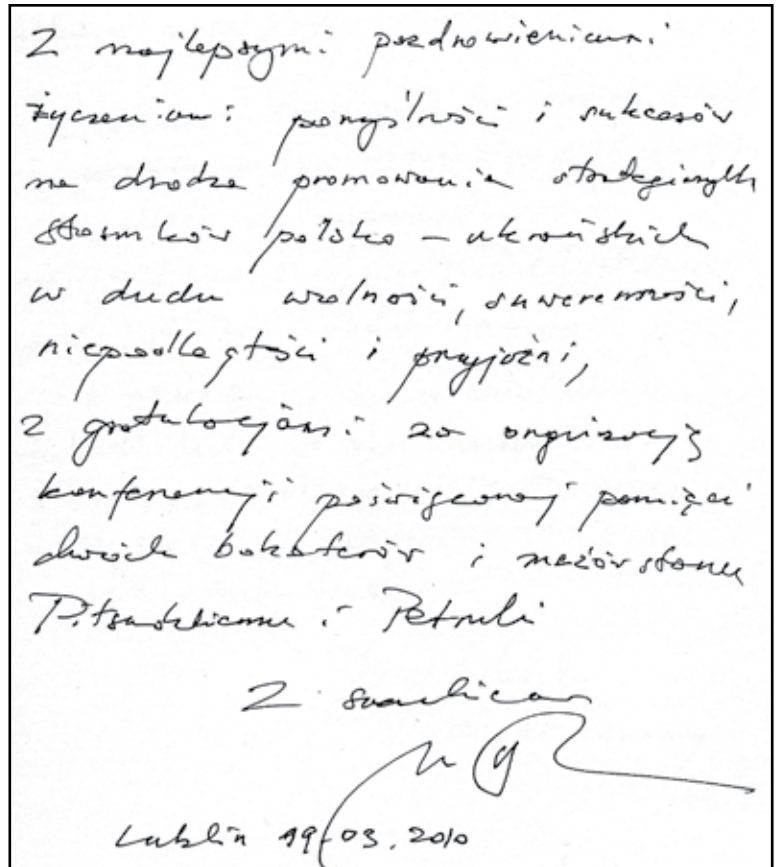 Z najlepszymi pozdrowieniami
życzeniami pomyślności i sukcesów
na drodze promowania strategicznych
stosunków polsko – ukraińskich
w duchu wolności, suwerenności,
niepodległości i przyjaźni,
z gratulacjami za organizację
konferencji poświęconej pamięci
dwóch bohaterów i mężów stanu
Piłsudskiemu i Petruli
Z szacunkiem
Lublin 19.03.2010